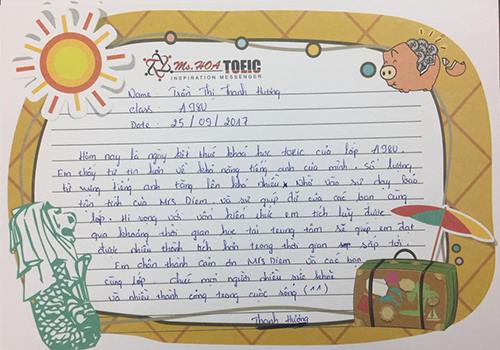 Ms.HOA TOEIC
INSPIRATION MESSENGER
Name : Trần Thị Thanh Hương
Class : A98U
Date : 25/09/2017
Hôm nay là ngày kết thúc khoá học toeic của lớp A98U.
Em thấy tự tin hơn về khả năng tiếng anh của mình. Số lượng
từ vựng tiếng anh tăng lên khá nhiều. Nhờ vào sự dạy bảo
tận tình của Mrs Diem. và sự giúp đỡ của các bạn cùng
lớp. Hi vọng với vốn kiến thức em tích luỹ được
qua khoảng thời gian học tại trung tâm sẽ giúp em đạt
được nhiều thành tích hơn trong thời gian sắp tới.
Em chân thành cảm ơn Mrs Diem và các bạn
cùng lớp. chúc mọi người nhiều sức khoẻ
và nhiều thành công trong cuộc sống (^^)
Thanh Hương